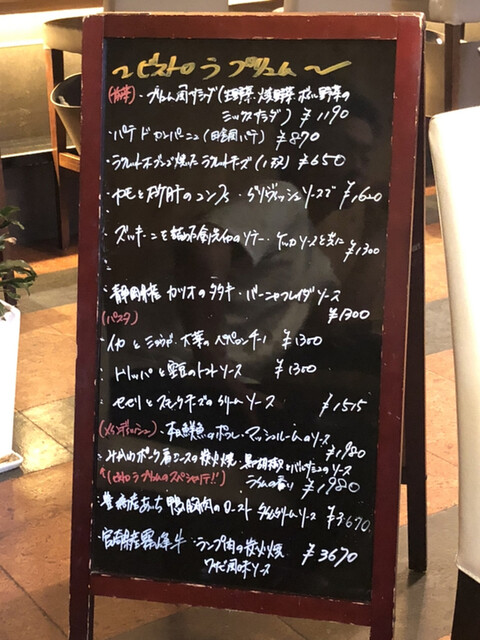 〜ビストロ ラ プリュム〜
(前菜)・プリュム風サラダ(生野菜・焼野菜・ホット野菜の
ミックスサラダ) ¥1190
・パテ ド カンパーニュ(田舎風パテ) ¥870
・ラクレットオーブンで焼いた ラクレットチーズ(1枚) ¥650
・カモと砂肝のコンフィ・グリビッシュソースで ¥1620
・ズッキーニを 仔のソテー・ケッカソースと共に ¥1300
・静岡県産 カツオのタタキ・バーニャフレイダソース
¥1300
(パスタ)
・イカとミョウガ・大葉のペペロンチーノ ¥1300
・トリッパと 豆のトマトソース ¥1300
・セセリとスモークチーズのクリームソース ¥1515
(メインディッシュ)・本日鮮魚のポワレ・マッシュルームのソース
¥1980
・みかわポーク肩ロースの炭火焼・黒胡椒とバルサミコのソース
ライムの香り ¥1980
↑(ラ プリュムのスペシャリテ!!)
・豊橋産あいち鴨胸肉のロースト タイムクリームソース ¥3670
・宮崎県産霧降牛・ランプ肉の炭火焼 ¥3670
ワサビ風味ソース